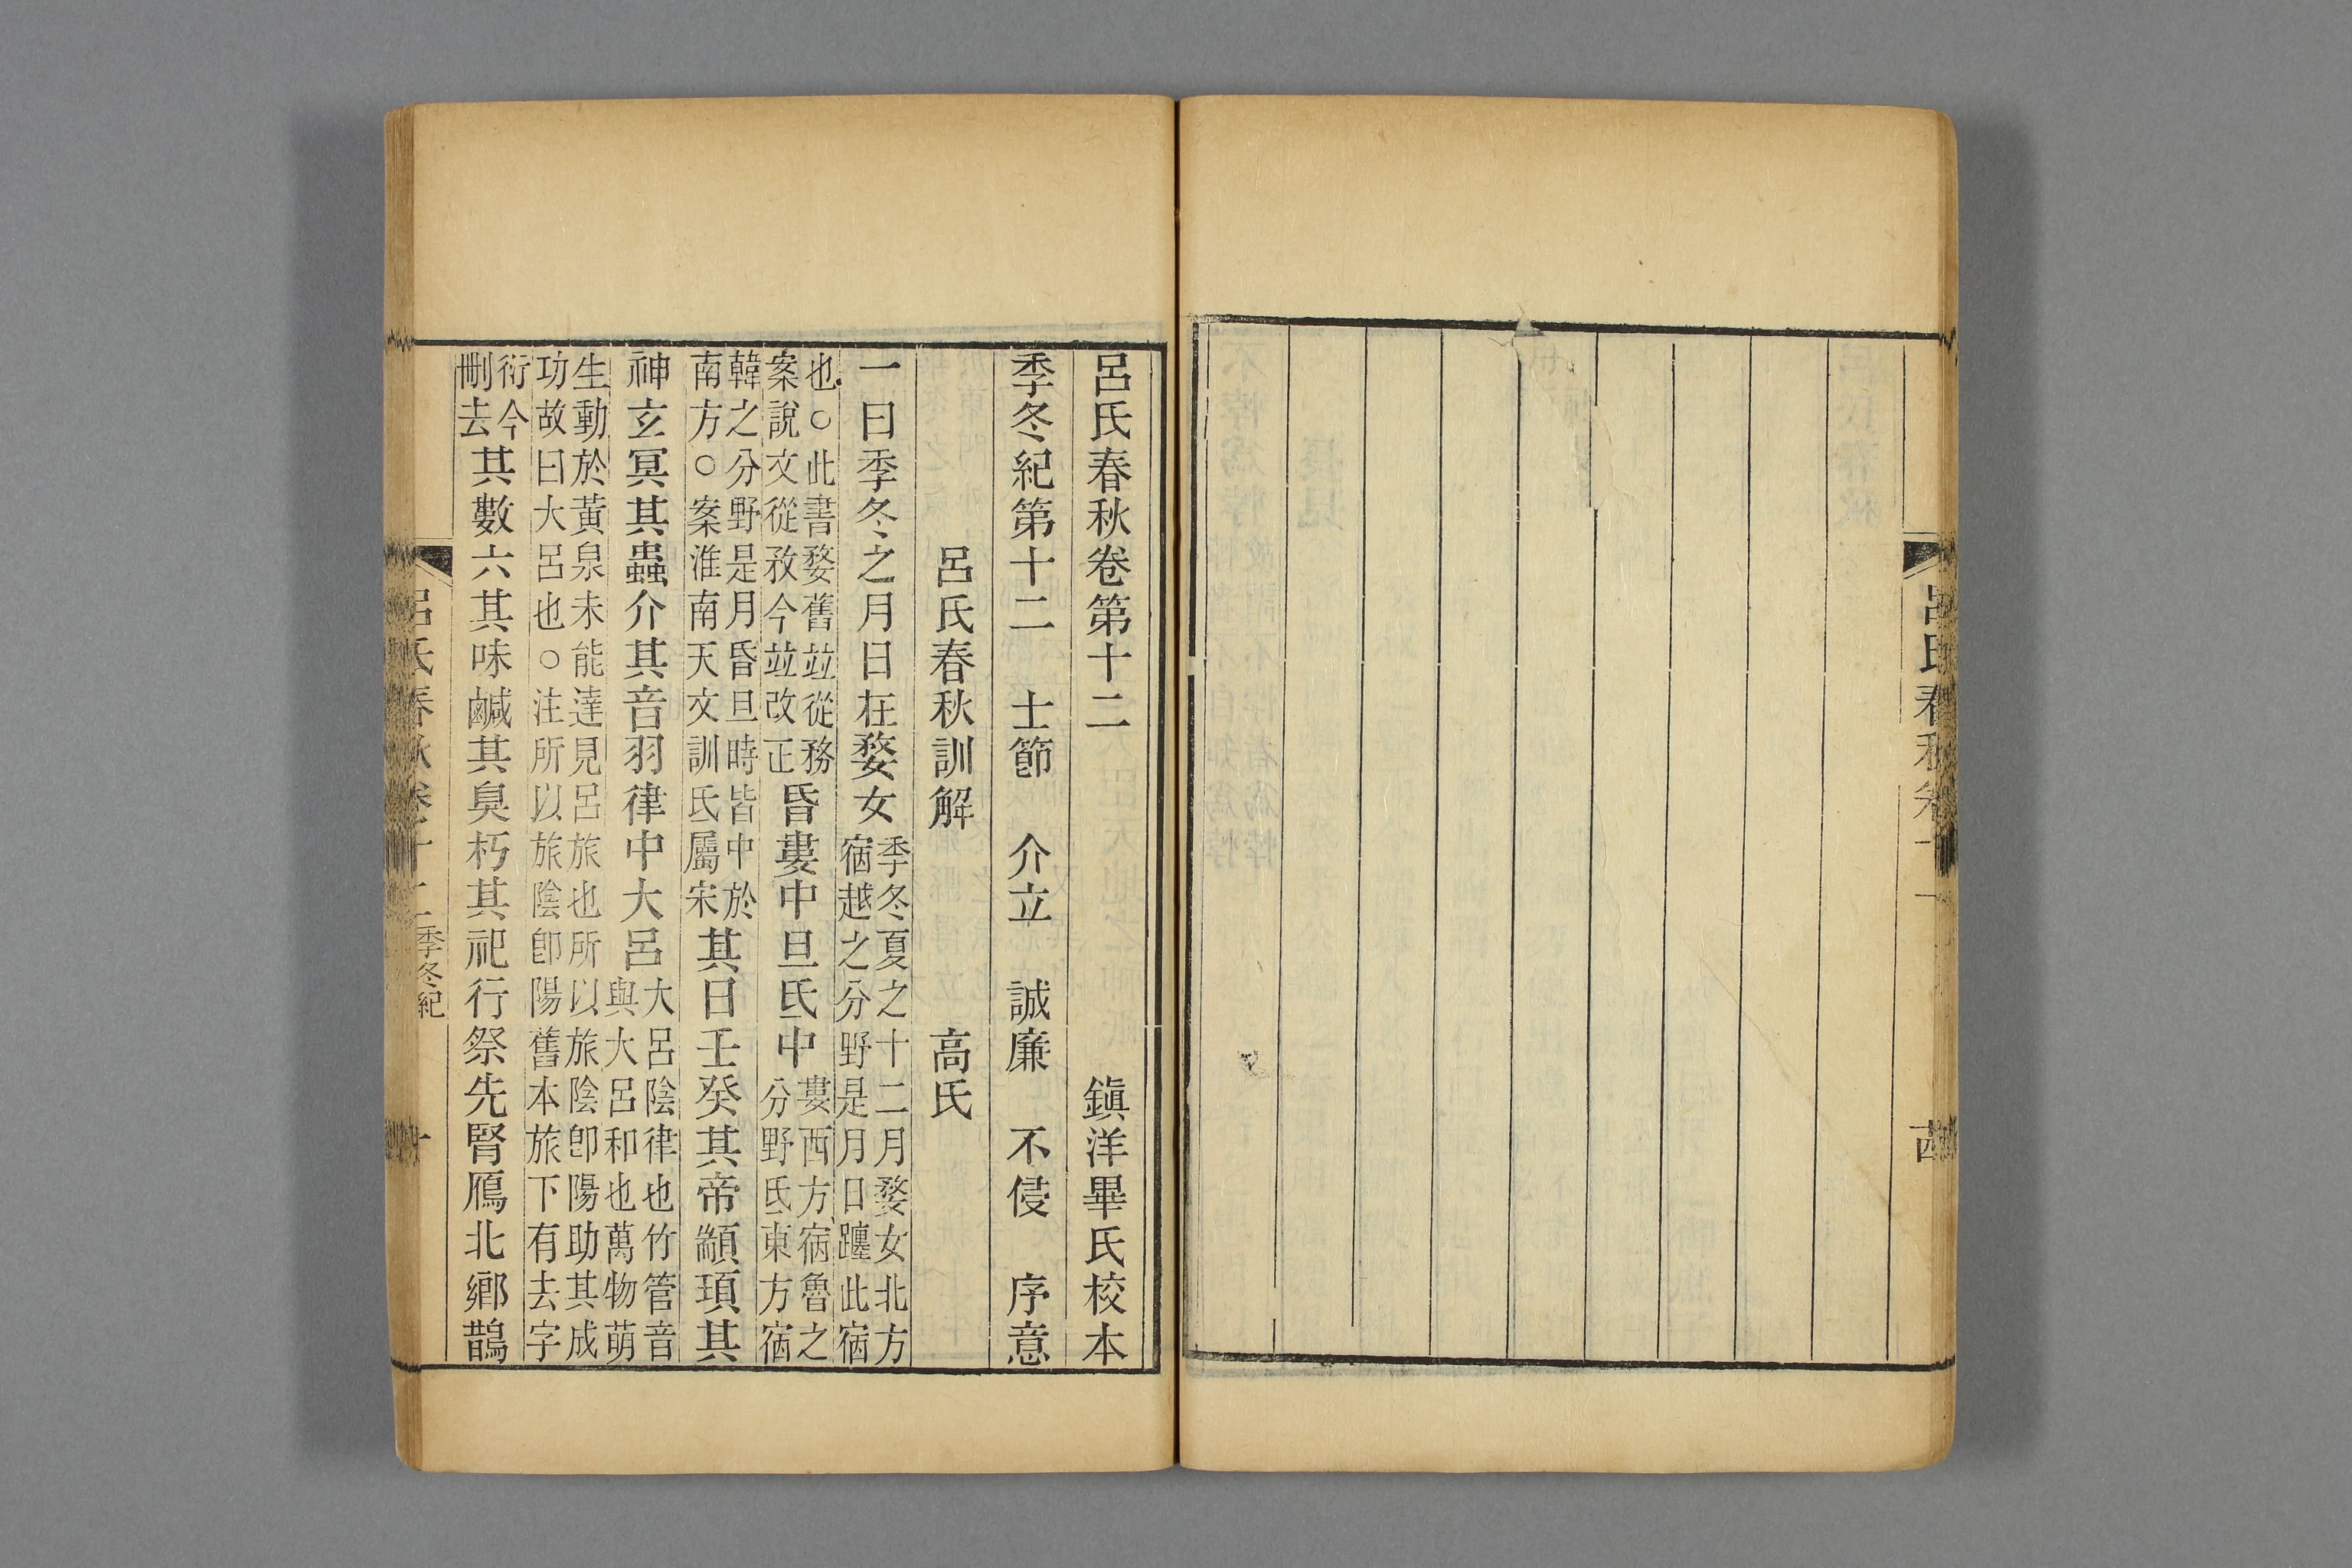 呂氏春秋卷十一
呂氏春秋卷第十二　鎮洋畢氏校本
季冬紀第十二　士節　介立　誠廉　不侵　序意
呂氏春秋訓解　高氏
一曰季冬之月日在婺女季冬夏之十二月婺女北方宿越之分野是月日躔此宿
也○此書婺舊竝從務案說文從敄今竝改正昏婁中旦氐中婁西方宿魯之分野氐東方宿
韓之分野是月昏旦時皆中於南方○案淮南天文訓氐屬宋其日壬癸其帝顓頊其
神玄冥其蟲介其音羽律中大呂大呂陰律也竹管音與大呂和也萬物萌
生動於黃泉未能達見呂旅也所以旅陰卽陽助其成功故曰大呂也○注所以旅陰卽陽舊本旅下有去字
衍今刪去其數六其味鹹其臭朽其祀行祭先腎鴈北鄉鵲
呂氏春秋卷十二　季冬紀